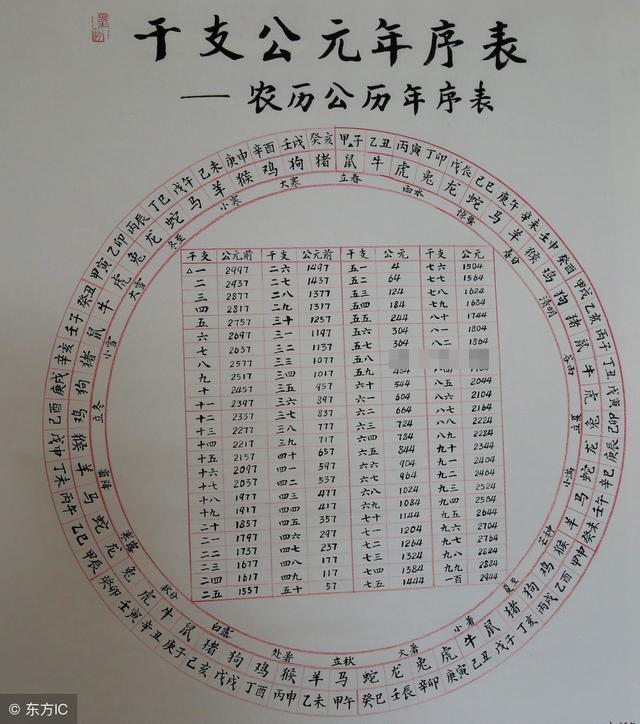 干支公元年序表
——农历公历年序表
甲子 乙丑 丙寅 丁卯 戊辰 己巳 庚午 辛未 壬申 癸酉 甲戌 乙亥 丙子 丁丑 戊寅 己卯 庚辰 辛巳 壬午 癸未 甲申 乙酉 丙戌 丁亥 戊子 己丑 庚寅 辛卯 壬辰 癸巳 甲午 乙未 丙申 丁酉 戊戌 己亥 庚子 辛丑 壬寅 癸卯 甲辰 乙巳 丙午 丁未 戊申 己酉 庚戌 辛亥 壬子 癸丑 甲寅 乙卯 丙辰 丁巳 戊午 己未 庚申 辛酉 壬戌 癸亥
鼠 牛 虎 兔 龙 蛇 马 羊 猴 鸡 狗 猪 鼠 牛 虎 兔 龙 蛇 马 羊 猴 鸡 狗 猪 鼠 牛 虎 兔 龙 蛇 马 羊 猴 鸡 狗 猪 鼠 牛 虎 兔 龙 蛇 马 羊 猴 鸡 狗 猪 鼠 牛 虎 兔 龙 蛇 马 羊 猴 鸡 狗 猪
立春 雨水 惊蛰 春分 清明 谷雨 立夏 小满 芒种 夏至 小暑 大暑 立秋 处暑 白露 秋分 寒露 霜降 立冬 小雪 大雪 冬至 小寒 大寒
干支 公元前 干支 公元前 干支 公元 干支 公元
△一 2997 二六 1497 五一 4 七六 1504
二 2437 二七 1437 五二 64 七七 1564
三 2877 二八 1377 五三 124 七八 1624
四 2817 二九 1317 五四 184 七九 1684
五 2757 三十 1257 五五 244 八十 1744
六 2697 三一 1197 五六 304 八一 1804
七 2637 三二 1137 五七 364 八二 1864
八 2577 三三 1077 五八
九 2517 三四 1017 五九
十 2457 三五 957 六十 544 八五 2044
十一 2397 三六 897 六一 604 八六 2104
十二 2337 三七 837 六二 664 八七 2164
十三 2277 三八 777 六三 724 八八 2224
十四 2217 三九 717 六四 784 八九 2284
十五 2157 四十 657 六五 844 九十 2344
十六 2097 四一 597 六六 904 九一 2404
十七 2037 四二 537 六七 964 九二 2464
十八 1977 四三 477 六八 1024 九三 2524
十九 1917 四四 417 六九 1084 九四 2584
二十 1857 四五 357 七十 1144 九五 2644
二一 1797 四六 297 七一 1204 九六 2704
二二 1737 四七 237 七二 1264 九七 2764
二三 1677 四八 177 七三 1324 九八 2824
二四 1617 四九 117 七四 1384 九九 2884
二五 1557 五十 57 七五 1444 一百 2944
© 东方IC